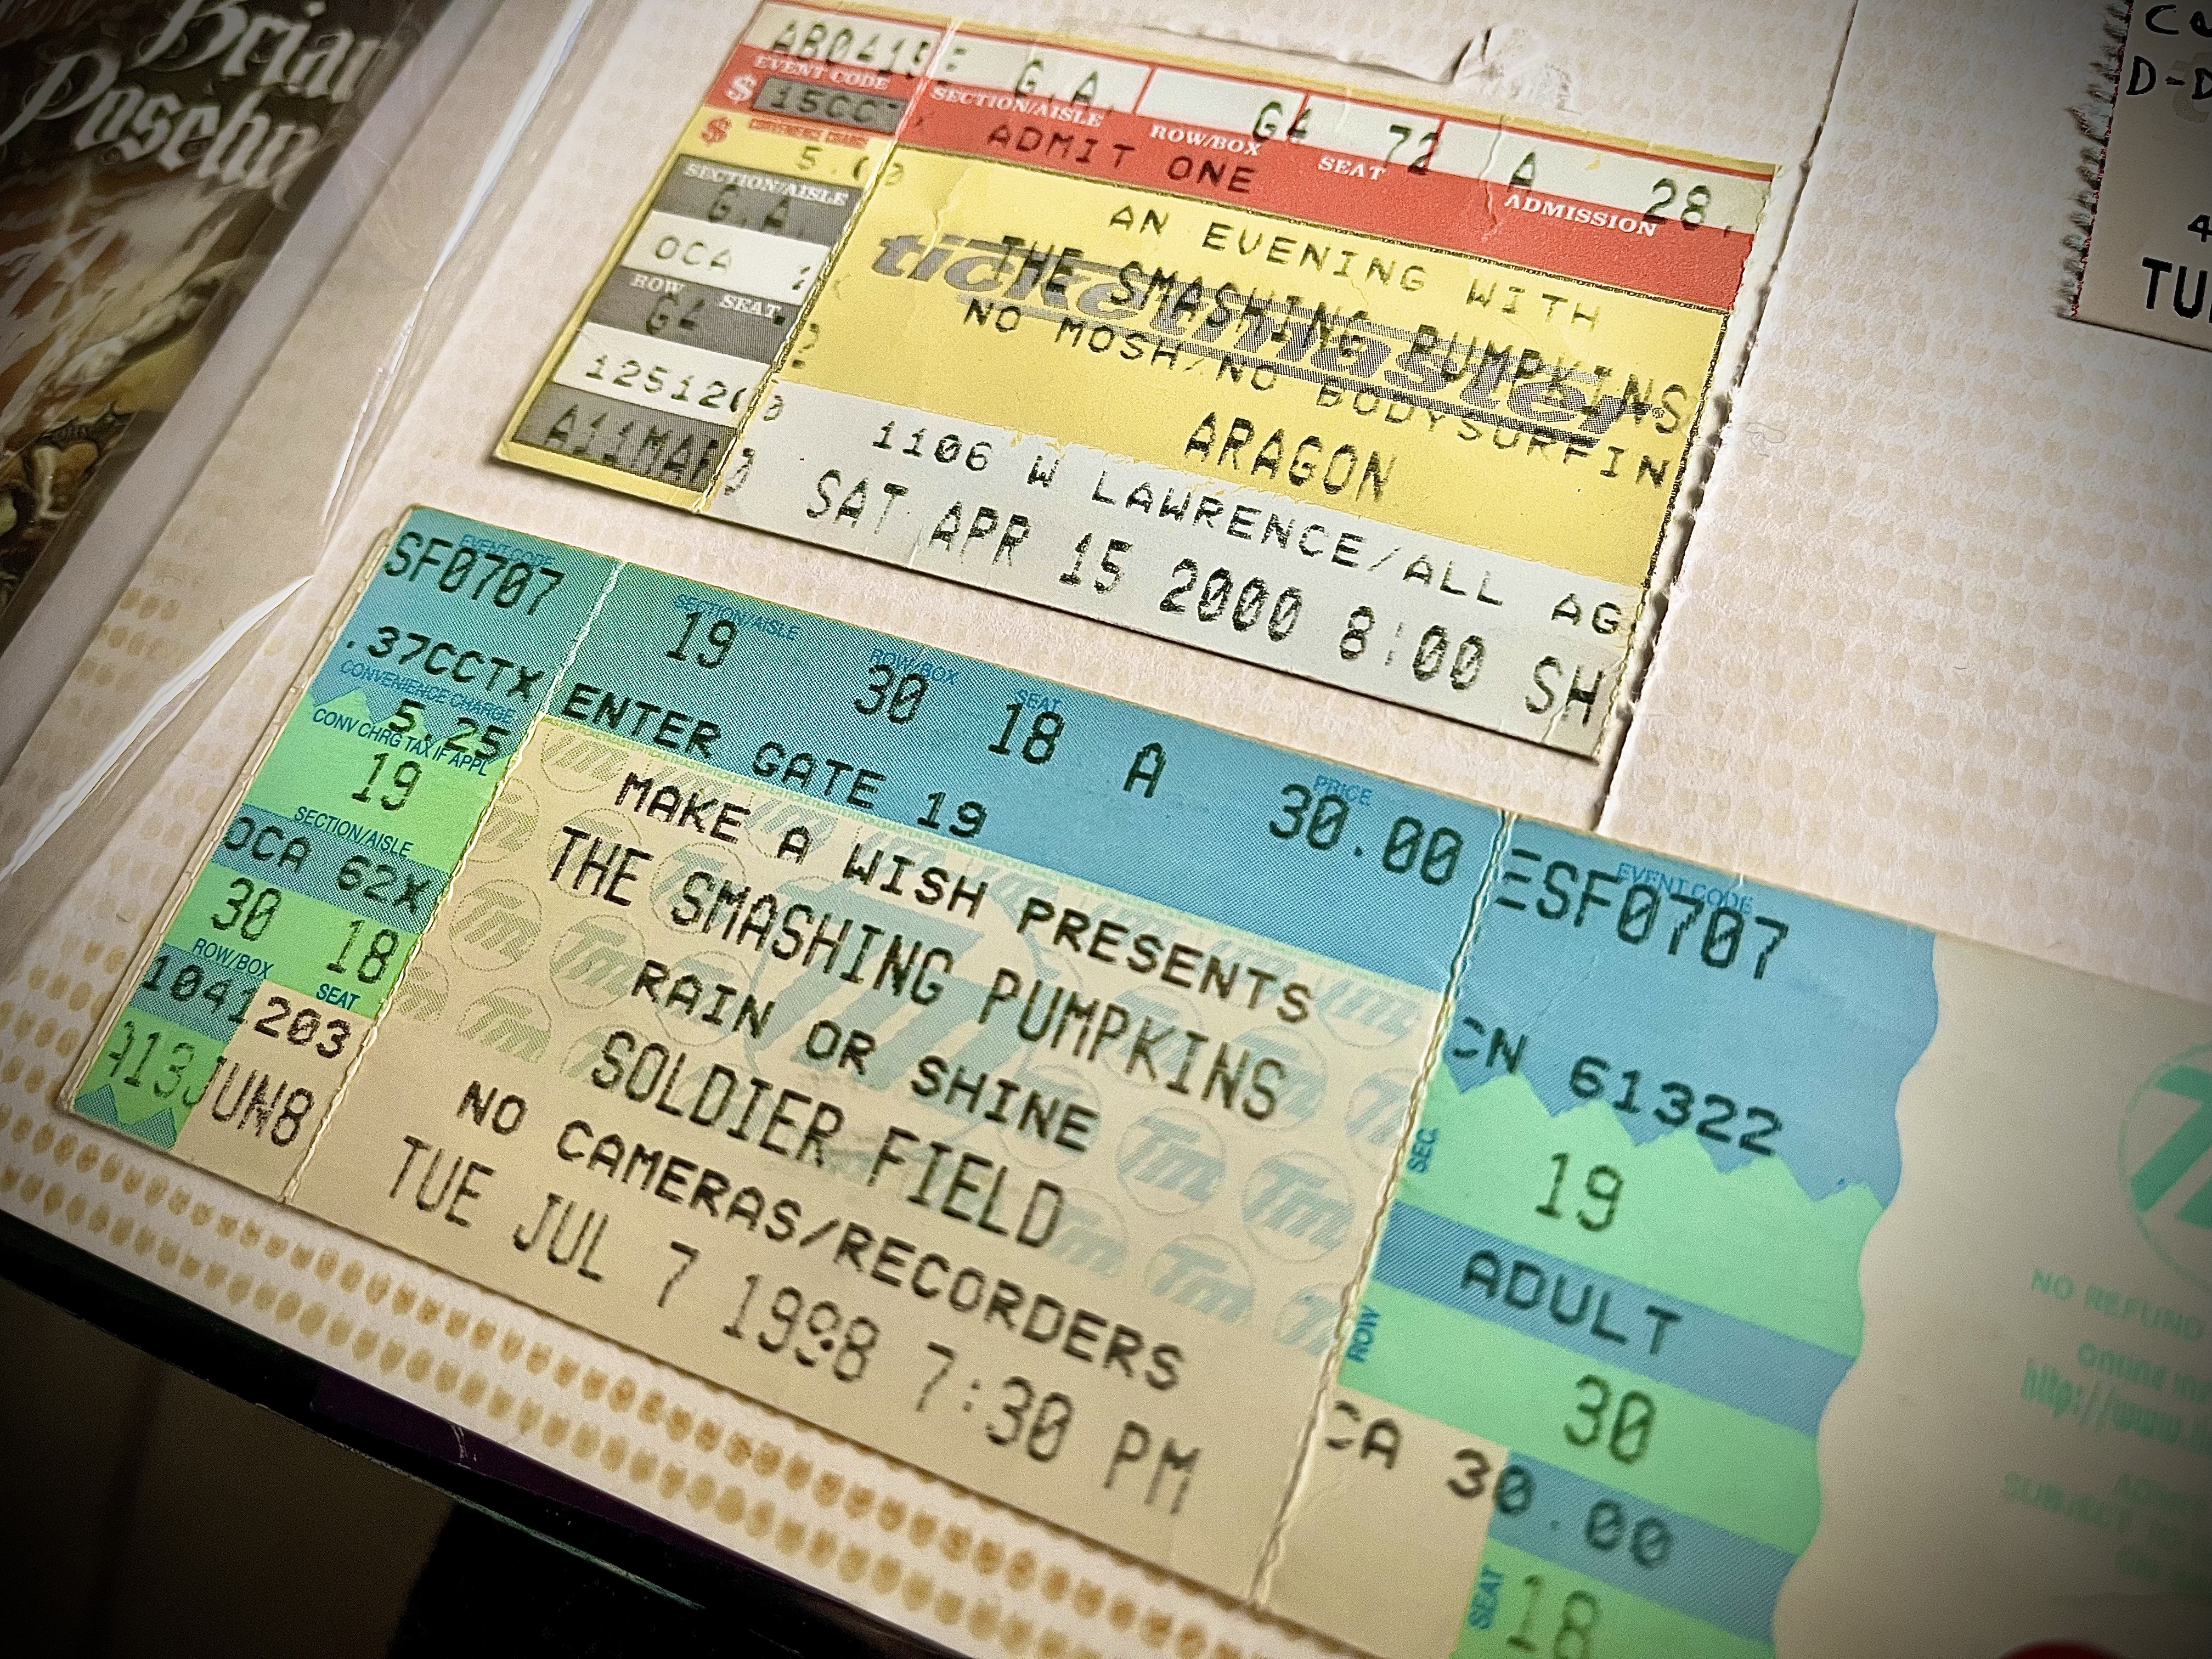 Brian
AB0415E G.A. GA 72 A 28.
EVENT CODE SECTION/AISLE ROW/BOX SEAT ADMISSION
$ ADMIT ONE
$ CONVENIENCE CHARGE
5.00
SECTION/AISLE
G.A.
OCA
ROW SEAT
GA
AN EVENING WITH
THE SMASHING PUMPKINS
ticketmaster
NO MOSH/NO BODYSURFIN
ARAGON
1106 W LAWRENCE/ALL AG
SAT APR 15 2000 8:00 SH
EVENT CODE
SF0707
.37CCTX
CONVENIENCE CHARGE
5.25
CONV CHRG TAX IF APPL
19
SECTION/AISLE
OCA 62X
30 18
ROW/BOX SEAT
1041203
A13JUN8
SECTION/AISLE ROW/BOX SEAT PRICE
19 30 18 A 30.00
ENTER GATE 19
MAKE A WISH PRESENTS
THE SMASHING PUMPKINS
RAIN OR SHINE
SOLDIER FIELD
NO CAMERAS/RECORDERS
TUE JUL 7 1998 7:30 PM
EVENT CODE
ESF0707
CN 61322
SEC.
19
ADULT
ROW
30
CA 30.00
SEAT
18
NO REFUND
http://www.
SUBJECT
D-D
4
TU